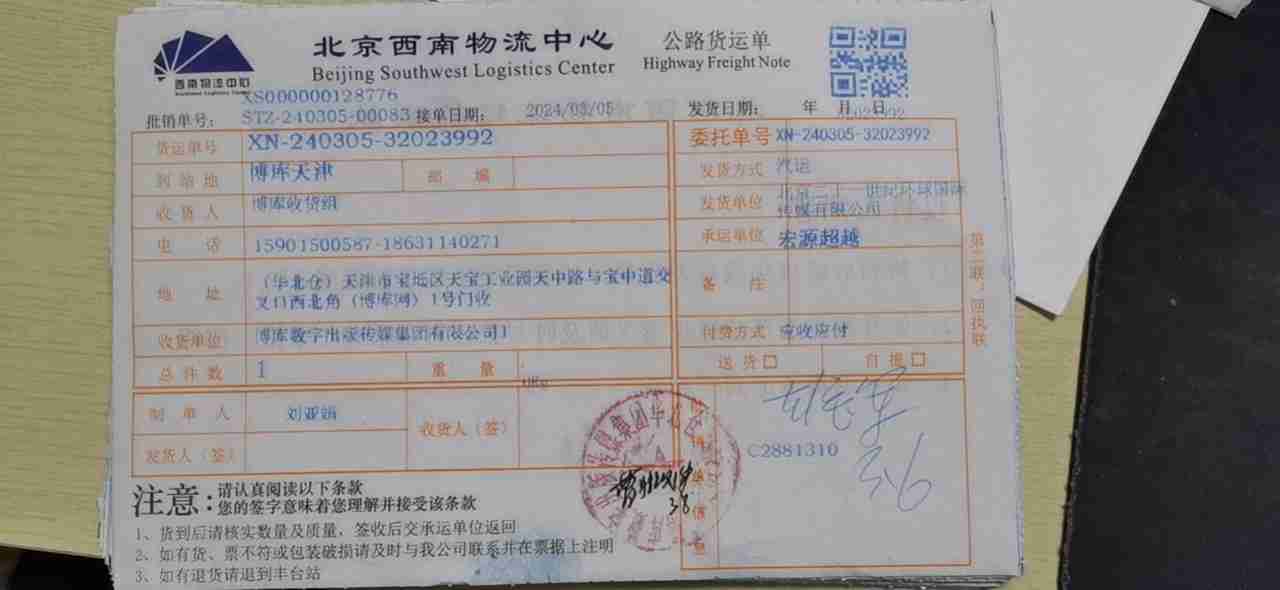 西南物流中心
Southwest Logistics Center
北京西南物流中心
Beijing Southwest Logistics Center
公路货运单
Highway Freight Note
XS000000128776
批销单号： STZ-240305-00083 接单日期： 2024/03/05 发货日期： 年 月 日
货运单号 XN-240305-32023992
委托单号 XN-240305-32023992
到站地 博库天津 邮 编
发货方式 汽运
收货人 博库收货组
发货单位 世纪环球国际
传媒有限公司
电 话 15901500587-18631140271
承运单位 宏源超越
地 址 （华北仓）天津市宝坻区天宝工业园天中路与宝中道交
叉口西北角（博库网）1号门收
备 注
收货单位 博库数字出版传媒集团有限公司1
付费方式 应收应付
总件数 1 重 量
送货 自提
制单人 刘亚娟
收货人（签）
发货人（签）
C2881310
3.6
3.8
第二联：回执联
注意： 请认真阅读以下条款
您的签字意味着您理解并接受该条款
1、货到后请核实数量及质量，签收后交承运单位返回
2、如有货、票不符或包装破损请及时与我公司联系并在票据上注明
3、如有退货请退到丰台站